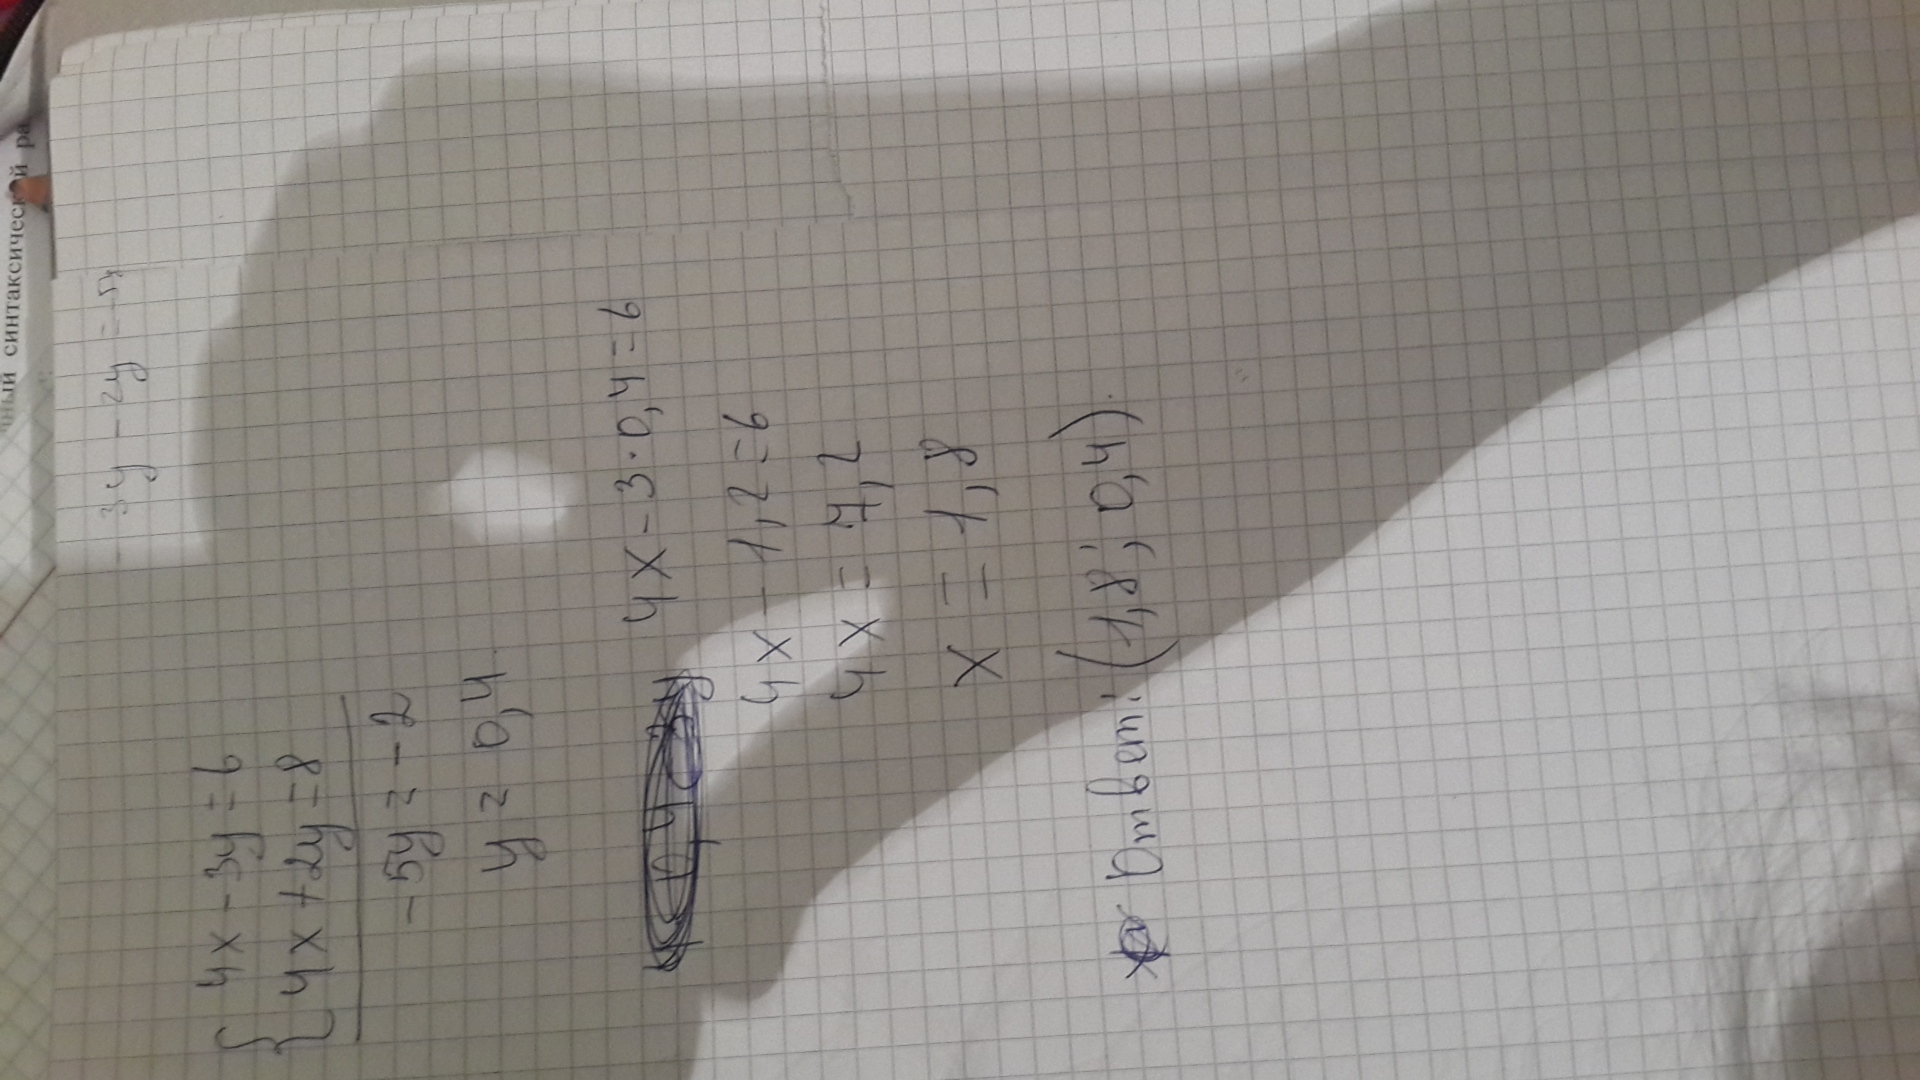 ный синтаксической ра
-3y-2y=-5y
4x-3y=6
4x+2y=8
-5y=-2
y=0,4
4x-3·0,4=6
4x-1,2=6
4x=7,2
x=1,8
Ответ: (1,8; 0,4).